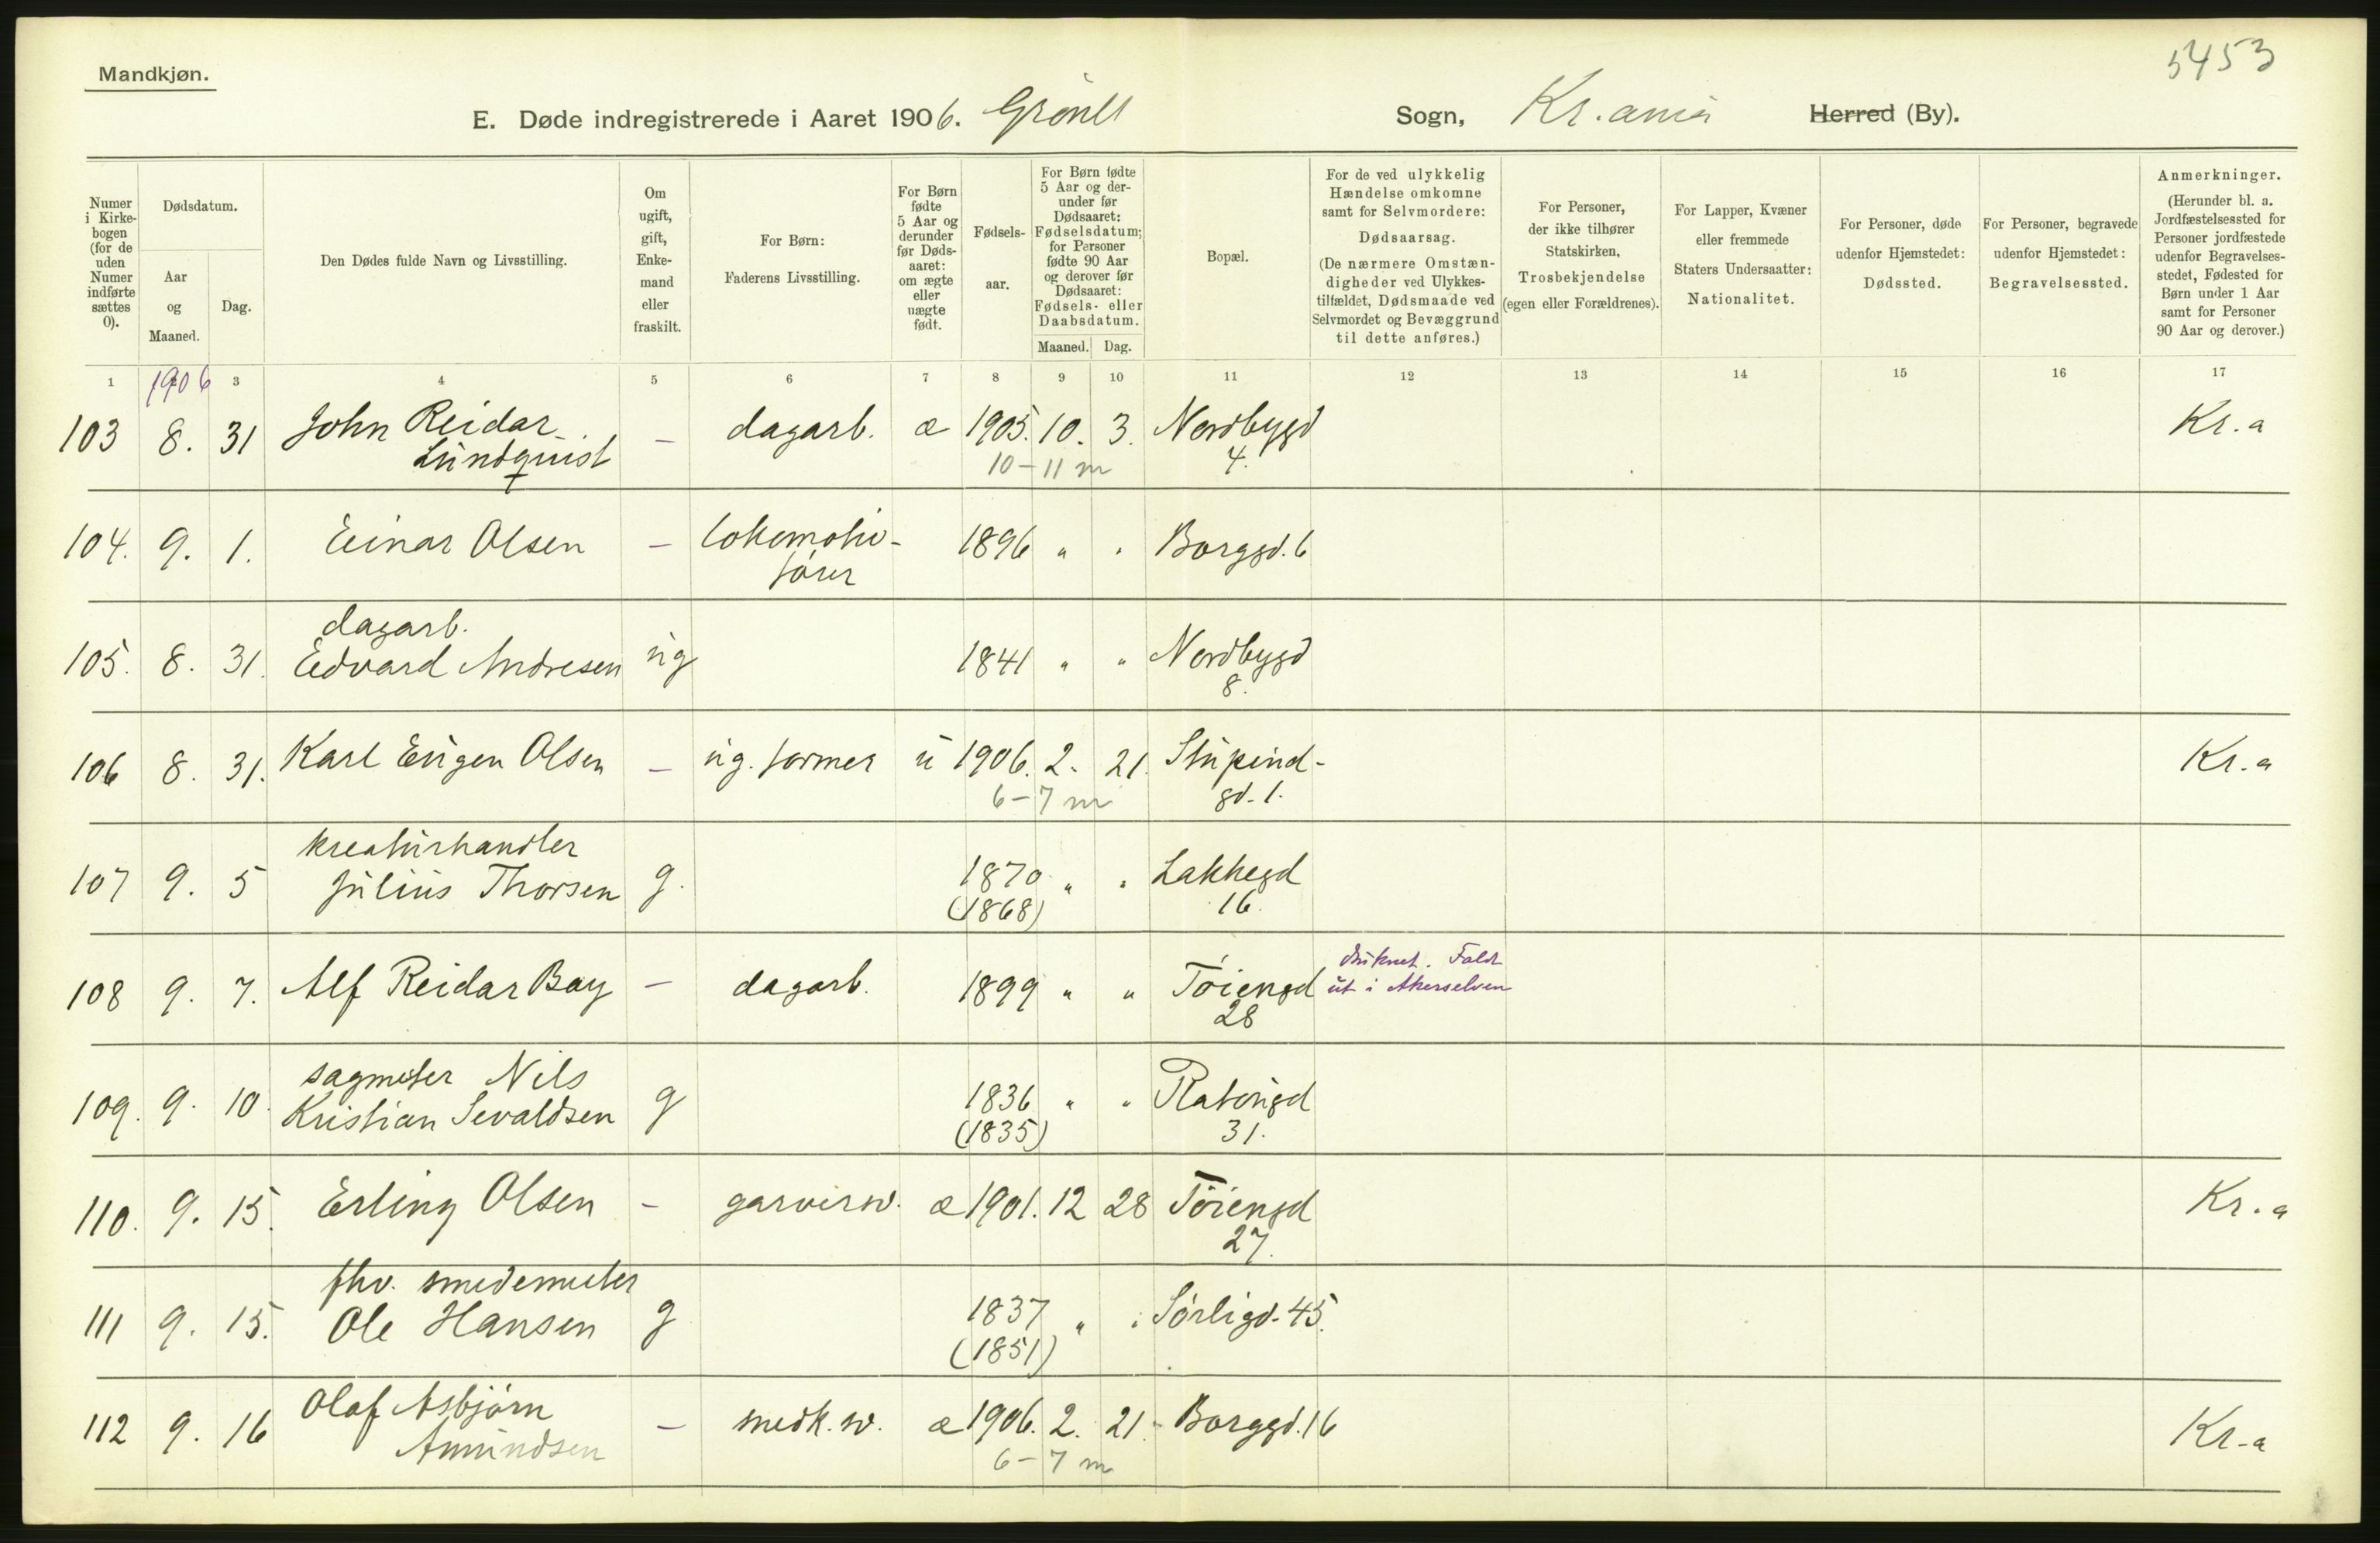 5453
Mandkjøn.
E. Døde indregistrerede i Aaret 1906. Grønl Sogn, Kr.ania Herred (By).
Numer i Kirkebogen (for de uden Numer indførte sættes 0).
Dødsdatum.
Aar og Maaned.
Dag.
Den Dødes fulde Navn og Livsstilling.
Om ugift, gift, Enkemand eller fraskilt.
For Børn: Faderens Livsstilling.
For Børn fødte 5 Aar og derunder før Dødsaaret: om ægte eller uægte født.
Fødselsaar.
For Børn fødte 5 Aar og derunder før Dødsaaret: Fødselsdatum; for Personer fødte 90 Aar og derover før Dødsaaret: Fødsels- eller Daabsdatum.
Maaned. Dag.
Bopæl.
For de ved ulykkelig Hændelse omkomne samt for Selvmordere: Dødsaarsag. (De nærmere Omstændigheder ved Ulykkestilfældet, Dødsmaade ved Selvmordet og Bevæggrund til dette anføres.)
For Personer, der ikke tilhører Statskirken, Trosbekjendelse (egen eller Forældrenes).
For Lapper, Kvæner eller fremmede Staters Undersaatter: Nationalitet.
For Personer, døde udenfor Hjemstedet: Dødssted.
For Personer, begravede udenfor Hjemstedet: Begravelsessted.
Anmerkninger. (Herunder bl. a. Jordfæstelsessted for Personer jordfæstede udenfor Begravelsesstedet, Fødested for Børn under 1 Aar samt for Personer 90 Aar og derover.)
1 3 4 5 6 7 8 9 10 11 12 13 14 15 16 17
1906
103 8. 31 John Reidar - dagarb. æ 1905. 10. 3. Nordbygd Kr.a
Lundquist 10-11 m 4.
104. 9. 1. Einar Olsen - lokomotiv- 1896 " " Borggd. 6
fører
dagarb.
105. 8. 31. Edvard Andresen ug 1841 " " Nordbygd
8.
106 8. 31. Karl Eugen Olsen - ug. former u 1906. 2. 21. Stupind- Kr.a
6-7 m gd. 1.
kreaturhandler
107 9. 5 Julius Thorsen g. 1870 " " Lakkegd
(1868) 16.
druknet. Faldt
108 9. 7. Alf Reidar Bay - dagarb. 1899 " " Tøiengd ut i Akerselven
28
sagmester Nils
109. 9. 10. Kristian Sevaldsen g 1836 " " Platougd
(1835) 31.
110. 9. 15. Erling Olsen - garversv. æ 1901. 12 28 Tøiengd Kr.a
27.
fhv. smedemester
111 9. 15. Ole Hansen g 1837 " " Sørligd. 45.
(1851)
Olaf Asbjørn
112 9. 16 Amundsen - smedk.sv. æ 1906. 2. 21. Borggd. 16 Kr.a
6-7 m